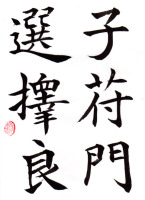 子苻門
選擇良